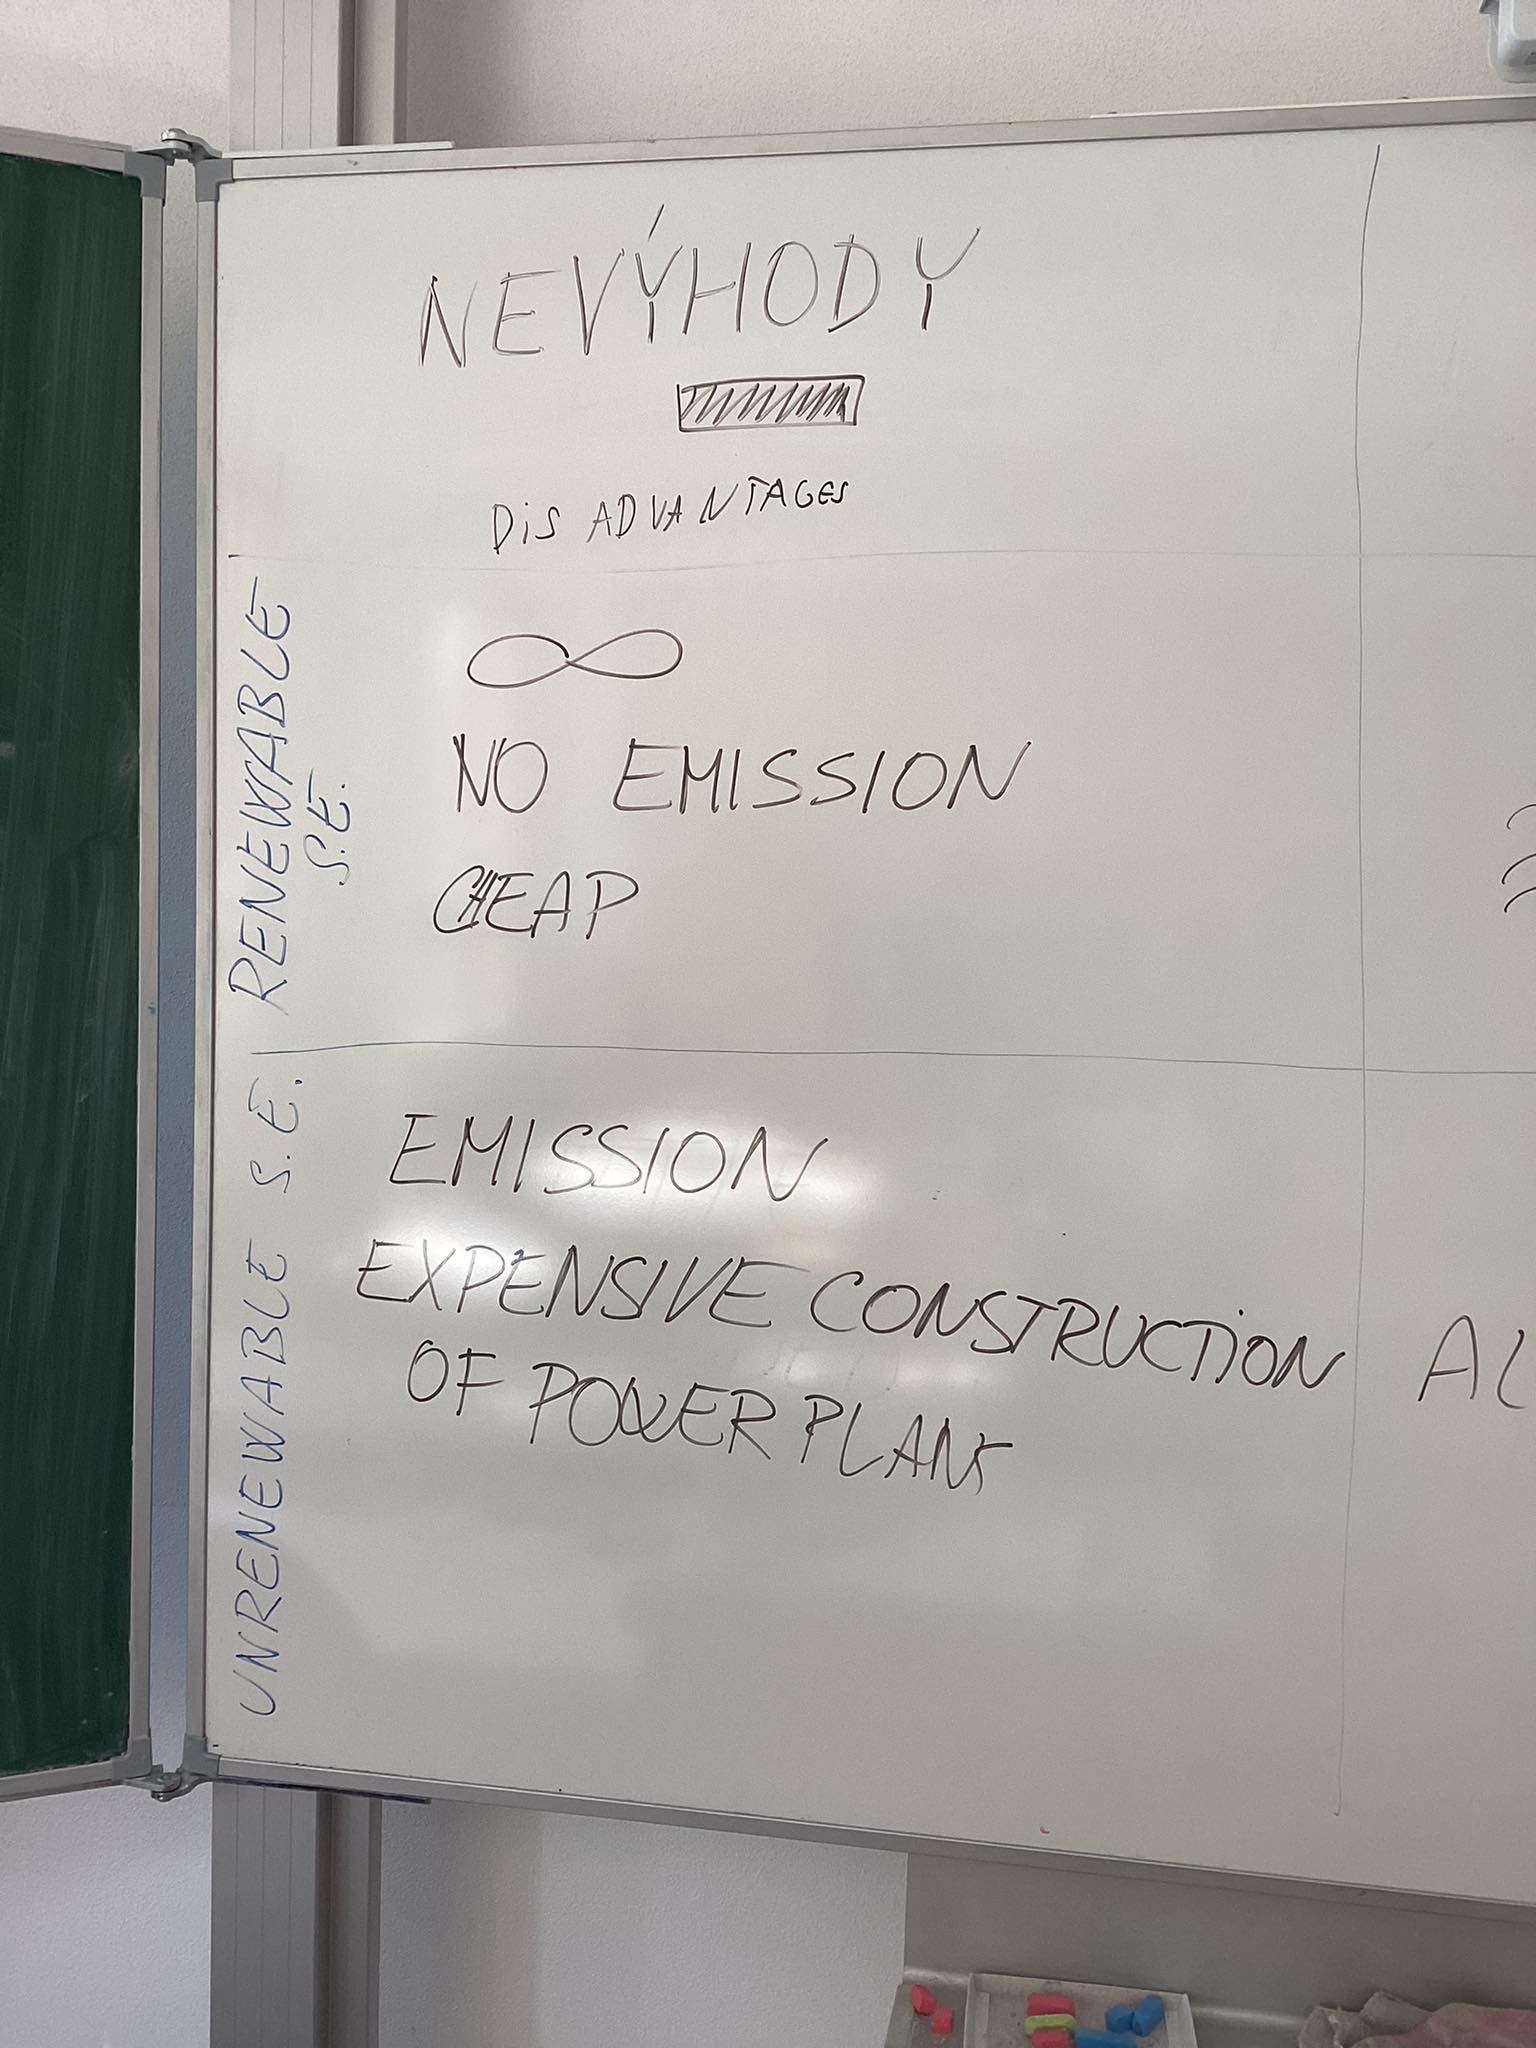 NEVÝHODY
DIS ADVANTAGES
RENEWABLE
S.E.
∞
NO EMISSION
CHEAP
UNRENEWABLE S.E.
EMISSION
EXPENSIVE CONSTRUCTION
OF POWER PLANT
AL